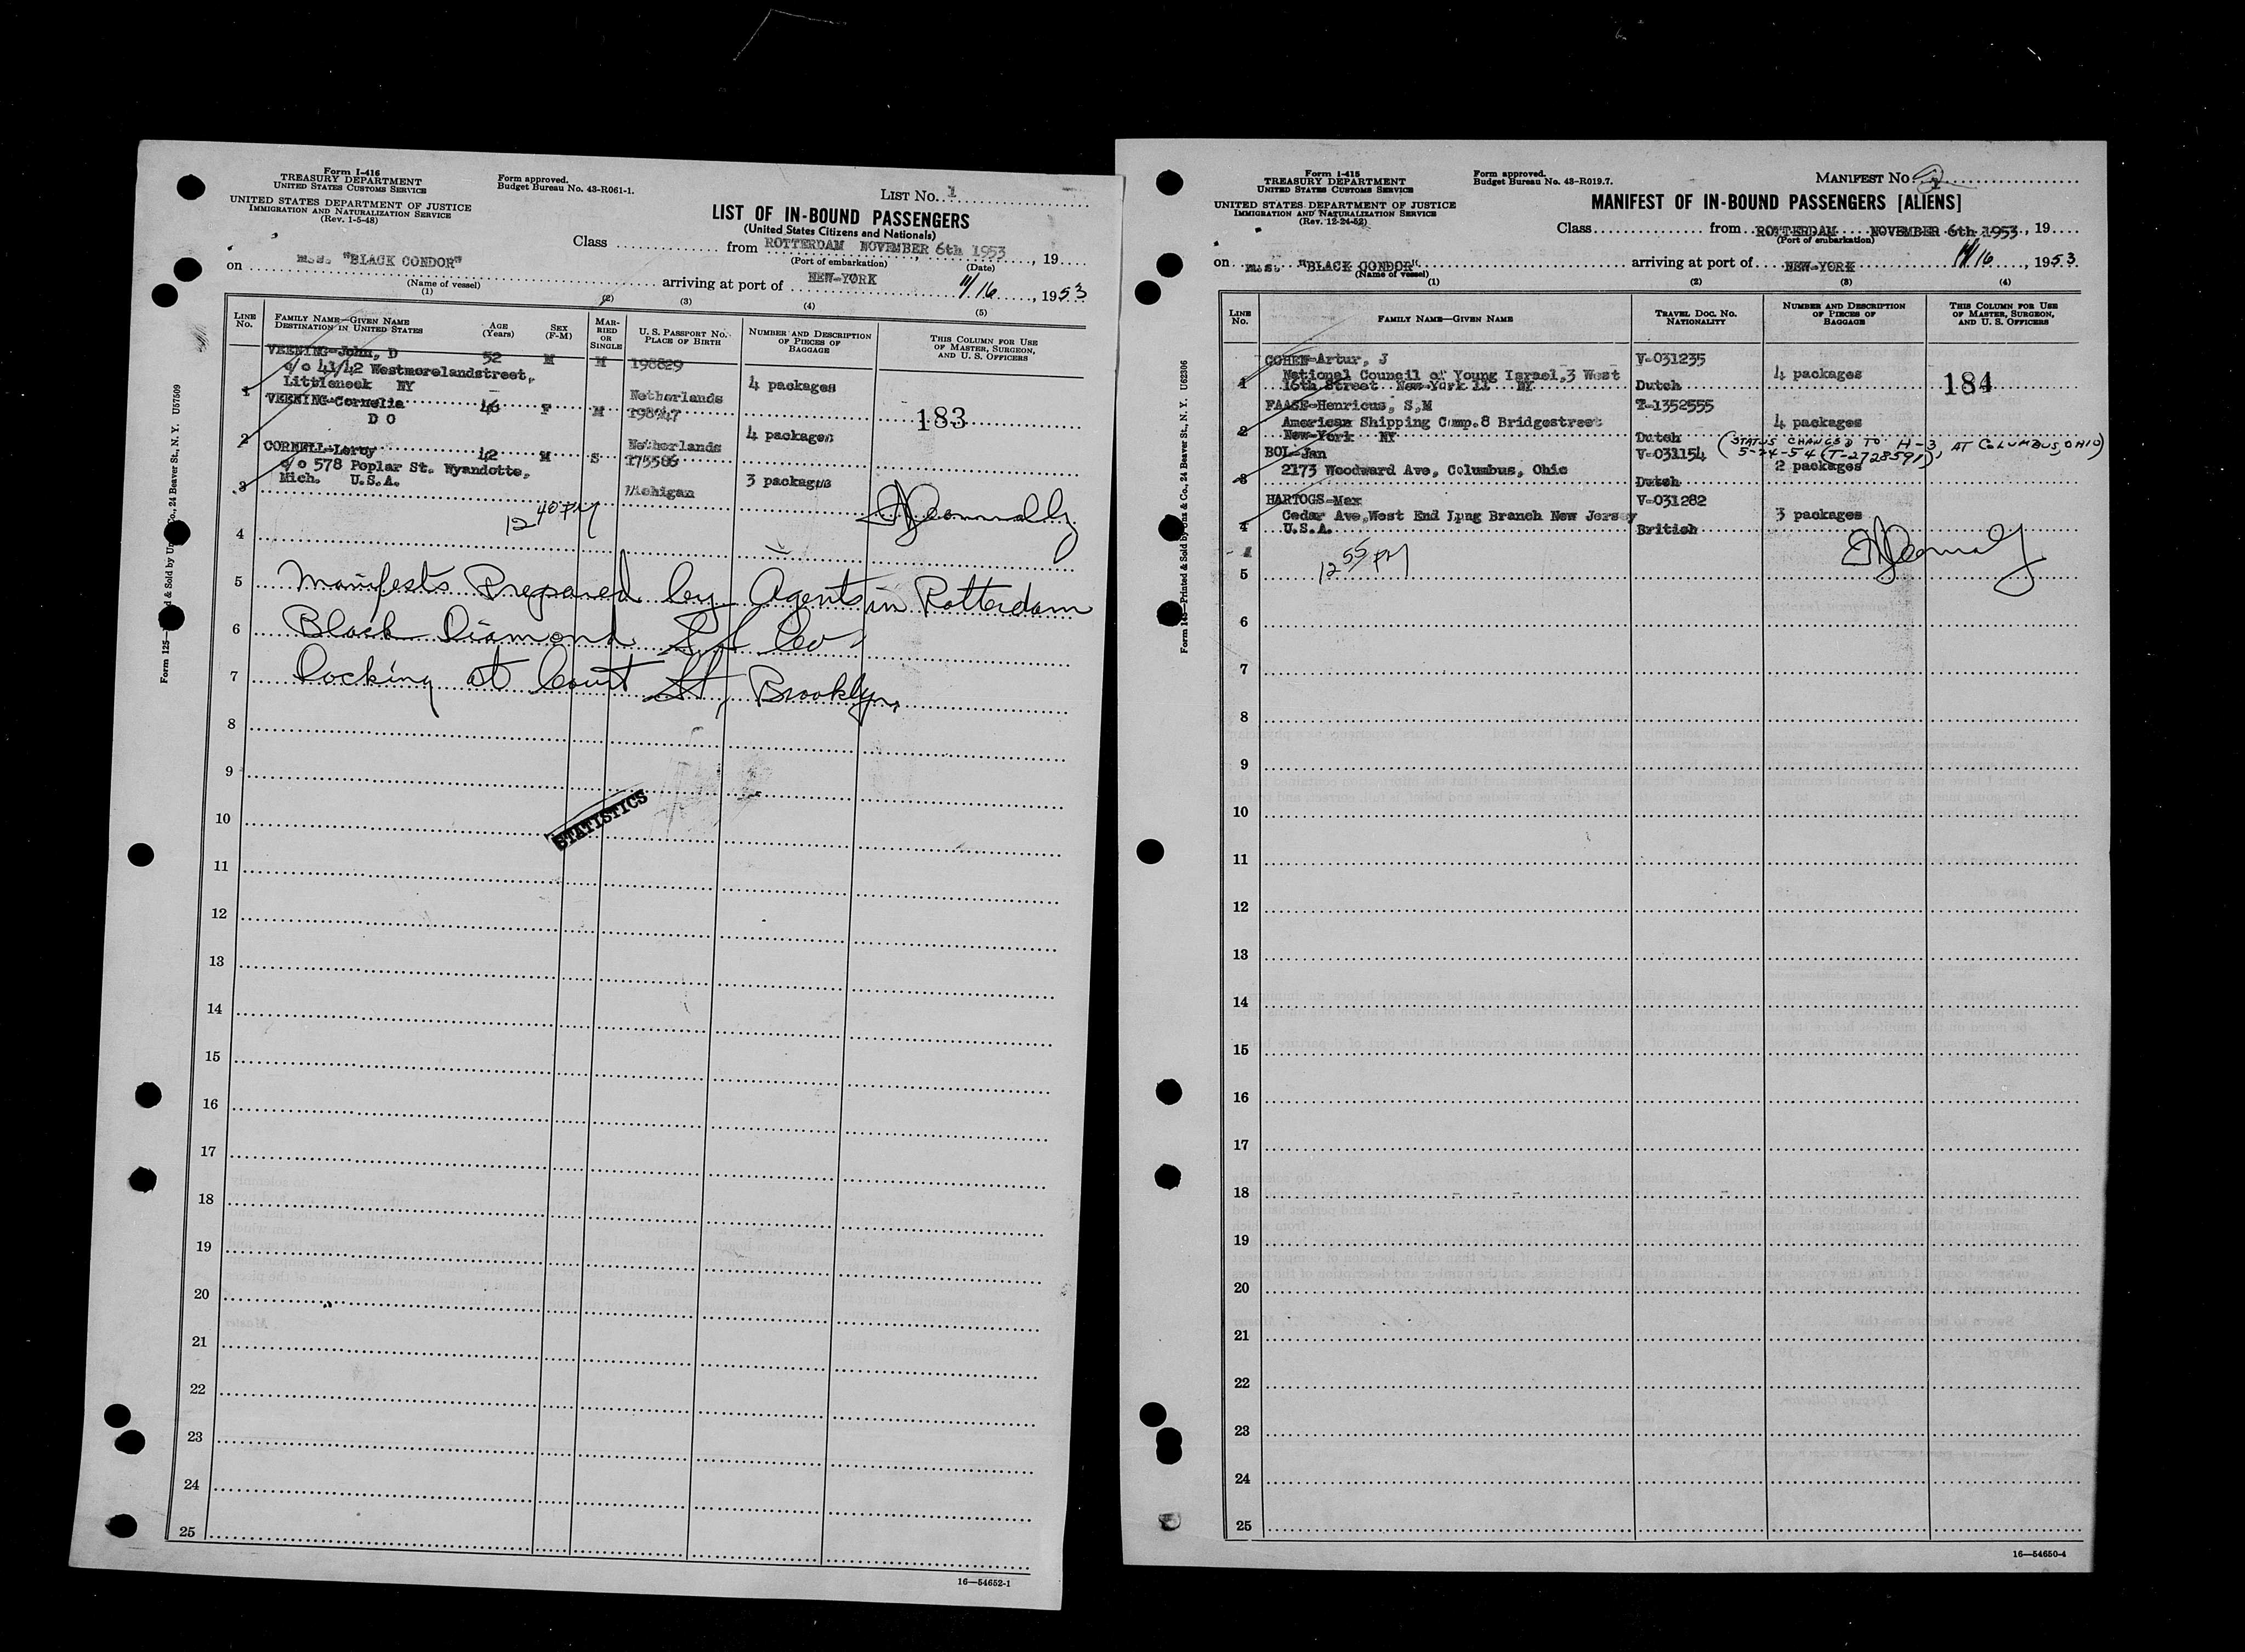 Form I-416
TREASURY DEPARTMENT
UNITED STATES CUSTOMS SERVICE
UNITED STATES DEPARTMENT OF JUSTICE
IMMIGRATION AND NATURALIZATION SERVICE
(Rev. 1-5-48)
Form approved.
Budget Bureau No. 43-R061-1.
LIST No. 1
LIST OF IN-BOUND PASSENGERS
(United States Citizens and Nationals)
Class from ROTTERDAM NOVEMBER 6th 1953, 19
(Port of embarkation) (Date)
on m.s. "BLACK CONDOR" arriving at port of NEW-YORK 11/16, 1953
(Name of vessel)
(1) (2) (3) (4) (5)
LINE No. FAMILY NAME—GIVEN NAME DESTINATION IN UNITED STATES AGE (Years) SEX (F-M) MARRIED OR SINGLE U. S. PASSPORT No. PLACE OF BIRTH NUMBER AND DESCRIPTION OF PIECES OF BAGGAGE THIS COLUMN FOR USE OF MASTER, SURGEON, AND U. S. OFFICERS
VEENING-John, D 52 M M 198829
c/o 41/42 Westmorelandstreet,
1 Littleneck NY Netherlands 4 packages
VEENING-Cornelia 46 F M 198747 183
D O
2 Netherlands 4 packages
CORNELL-Leroy 42 M S 175586
c/o 578 Poplar St. Wyandotte,
3 Mich. U.S.A. Michigan 3 packages
12 40 PM
4
5 Manifests Prepared by Agents in Rotterdam
6 Black Diamond SS Co
7 Docking at Court St, Brooklyn
8
9
10 STATISTICS
11
12
13
14
15
16
17
18
19
20
21
22
23
24
25
16—54652-1
Form I-415
TREASURY DEPARTMENT
UNITED STATES CUSTOMS SERVICE
UNITED STATES DEPARTMENT OF JUSTICE
IMMIGRATION AND NATURALIZATION SERVICE
(Rev. 12-24-52)
Form approved.
Budget Bureau No. 43-R019.7.
MANIFEST No
MANIFEST OF IN-BOUND PASSENGERS [ALIENS]
Class from ROTTERDAM NOVEMBER 6th 1953, 19
(Port of embarkation)
on m.s. "BLACK CONDOR" arriving at port of NEW-YORK 11/16, 1953
(Name of vessel)
(1) (2) (3) (4)
LINE No. FAMILY NAME—GIVEN NAME TRAVEL DOC. No. NATIONALITY NUMBER AND DESCRIPTION OF PIECES OF BAGGAGE THIS COLUMN FOR USE OF MASTER, SURGEON, AND U. S. OFFICERS
COHEN-Artur, J V-031235
National Council of Young Israel,3 West 4 packages
1 16th Street New-York 11 NY Dutch 184
FAASE-Henricus, S,M T-1352555
American Shipping Comp.8 Bridgestreet 4 packages
2 New-York NY Dutch (STATUS CHANGED TO H-3, AT COLUMBUS, OHIO)
BOL-Jan V-031154 5-24-54 (T-2728591)
2173 Woodward Ave, Columbus, Ohio 2 packages
3 Dutch
HARTOGS-Max V-031282
Cedar Ave,West End Long Branch New Jersey 3 packages
4 U.S.A. British
12 55 PM
5
6
7
8
9
10
11
12
13
14
15
16
17
18
19
20
21
22
23
24
25
16—54650-4